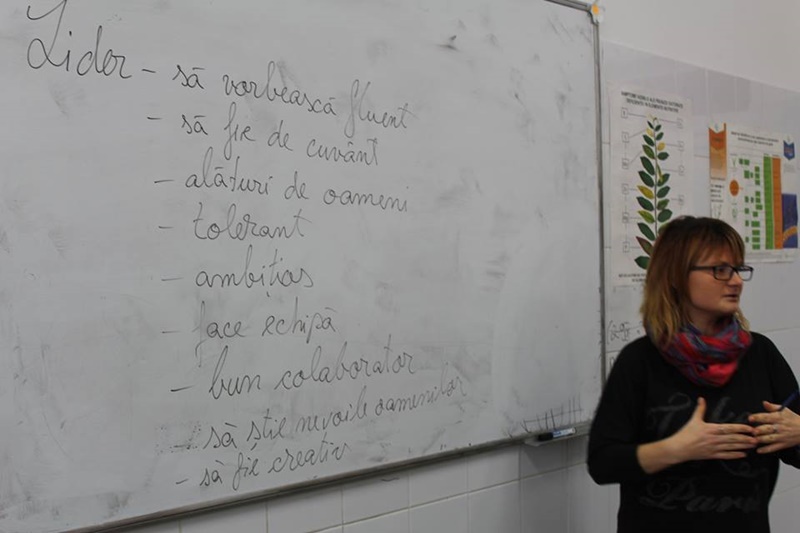 Lider - să vorbească fluent
- să fie de cuvânt
- alături de oameni
- tolerant
- ambițios
- face echipă
- bun colaborator
- să știe nevoile oamenilor
- să fie creativ